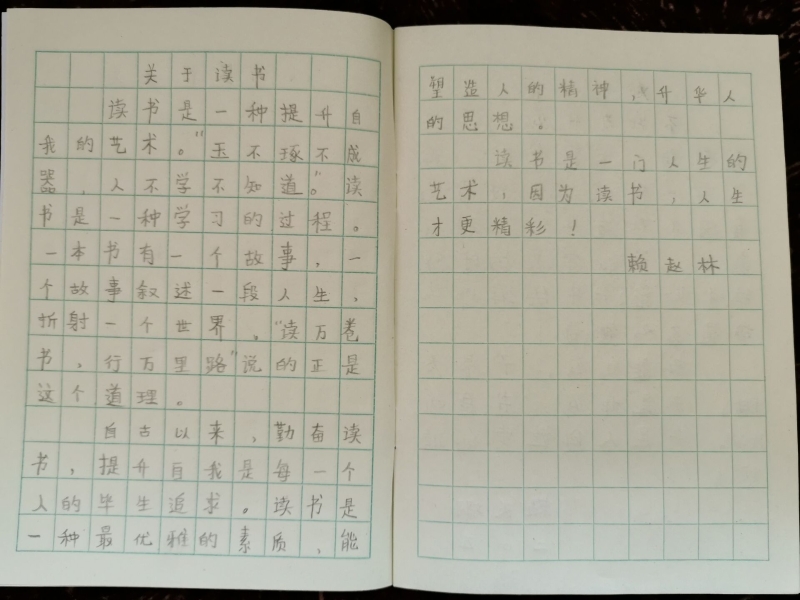 关于读书
读书是一种提升自
我的艺术。“玉不琢不成
器，人不学不知道。”读
书是一种学习的过程。
一本书有一个故事，一
个故事叙述一段人生，
折射一个世界。“读万卷
书，行万里路”说的正是
这个道理。
自古以来，勤奋读
书，提升自我是每一个
人的毕生追求。读书是
一种最优雅的素质，能
塑造人的精神，升华人
的思想。
读书是一门人生的
艺术，因为读书，人生
才更精彩！
赖赵林